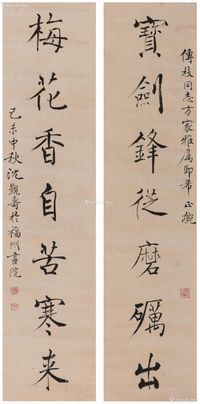 傅枝同志方家雅属即希正挽
寶劍鋒從磨礪出
梅花香自苦寒来
己未中秋沈觐壽於福州畫院